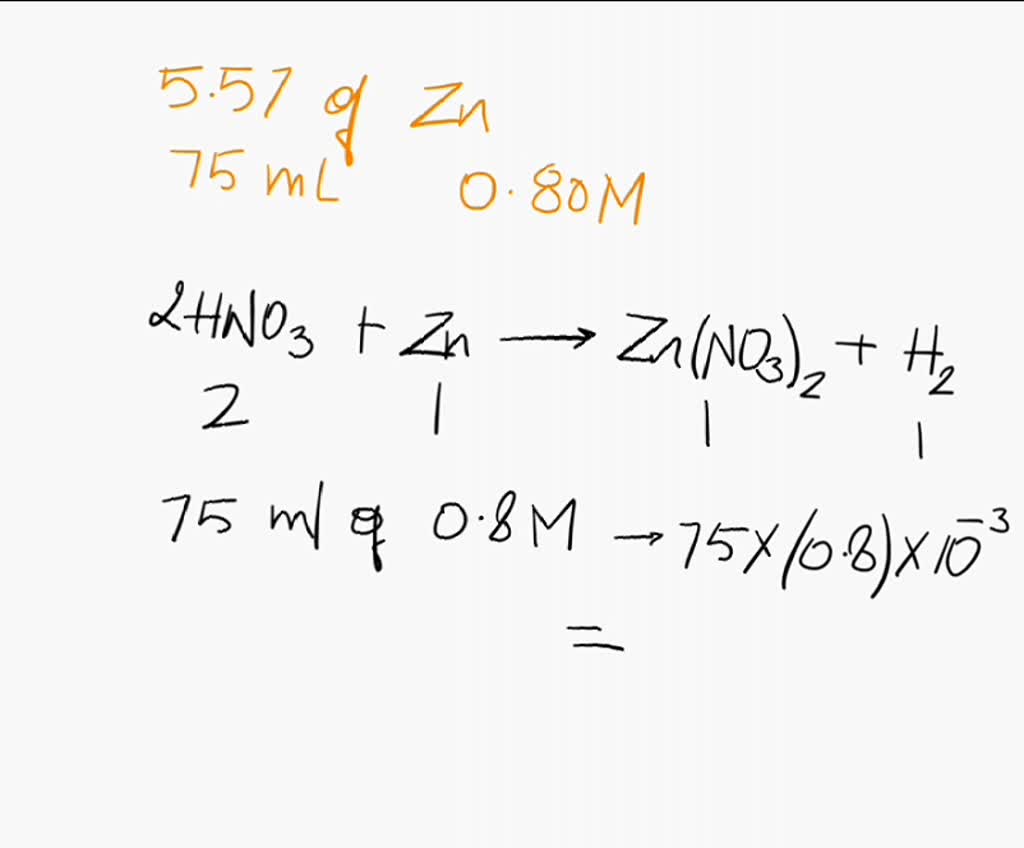 5.57 of Zn
75 mL 0.80M
2HNO3 + Zn → Zn(NO3)2 + H2
2 1 1 1
75 ml of 0.8M → 75X(0.8)X10⁻³
=